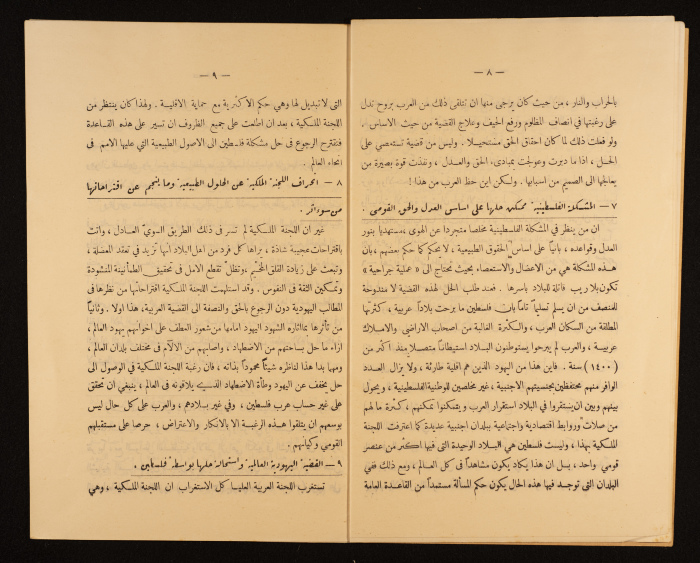 — ٨ —
بالحراب والنار ، من حيث كان يرجى منها ان تتلقى ذلك من العرب بروح تدل
على رغبتها في انصاف المظلوم ورفع الحيف وعلاج القضية من حيث الاساس .
ولو فعلت ذلك لما كان احقاق الحق مستحيلا . وليس من قضية تستعصي على
الحل ، اذا ما دبرت وعولجت بمبادىء الحق والعدل ، ونفذت قوة بصيرة من
يعالجها الى الصميم من اسبابها . ولكن اين حظ العرب من هذا !
٧ – المشكلة الفلسطينية ممكن حلها على اساس العدل والحق القومي .
ان من ينظر في المشكلة الفلسطينية مخلصا متجردا عن الهوى ، مستهديا بنور
العدل وقواعده ، بانياً على اساس الحقوق الطبيعية ، لا يحكم كما حكم بعضهم ، بان
هذه المشكلة هي من الاعضال والاستعصاء بحيث تحتاج الى « عملية جراحية »
تكون بلا ريب قاتلة للبلاد باسرها . فعند طلب الحل لهذه القضية لا مندوحة
للمنصف من ان يسلم تسليماً تاماً بان فلسطين ما برحت بلاداً عربية ، كثرتها
المطلقة من السكان العرب ، والكثرة الغالبة من اصحاب الاراضي والاملاك
عربية ، والعرب لم يبرحوا يستوطنون البلاد استيطاناً متصلا منذ اكثر من
(١٤٠٠) سنة . فاين هذا من اليهود الذين هم اقلية طارئة ، ولا يزال العدد
الوافر منهم محتفظين بجنسيتهم الاجنبية ، غير مخلصين للوطنية الفلسطينية ، ويحول
بينهم وبين ان يستقروا في البلاد استقرار العرب ويتمكنوا تمكنهم ، كثرة ما لهم
من صلات وروابط اقتصادية واجتماعية ببلدان اجنبية عديدة كما اعترفت اللجنة
الملكية بهذا ، وليست فلسطين هي البلاد الوحيدة التى فيها اكثر من عنصر
قومي واحد ، بل ان هذا يكاد يكون مشاهداً في كل العالم ، ومع ذلك ففي
البلدان التى توجد فيها هذه الحال يكون حكم المسألة مستمداً من القاعدة العامة
— ٩ —
التى لا تبديل لها وهي حكم الاكثرية مع حماية الاقلية . ولهذا كان ينتظر من
اللجنة الملكية ، بعد ان اطلعت على جميع الظروف ان تسير على هذه القاعدة
فتقترح الرجوع في حل مشكلة فلسطين الى الاصول الطبيعية التي عليها الامم في
انحاء العالم .
٨ – انحراف اللجنة الملكية عن الحلول الطبيعية وما ينجم عن اقتراحاتها
من سوء اثر .
غير ان اللجنة الملكية لم تسر في ذلك الطريق السوي العادل ، واتت
باقتراحات عجيبة شاذة ، يراها كل فرد من اهل البلاد انها تزيد في تعقد المعضلة ،
وتبعث على زيادة القلق المخيم ، وتظل تقطع الامل في تحقيق الطمأنينة المنشودة
وتمكين الثقة في النفوس . وقد استلهمت اللجنة الملكية اقتراحاتها من نظرها في
المطالب اليهودية دون الرجوع بالحق والنصفة الى القضية العربية ، هذا اولا . وثانياً
من تأثرها بما اثاره الشهود اليهود امامها من شعور العطف على اخوانهم يهود العالم ،
ازاء ما حل بساحتهم من الاضطهاد ، واصابهم من الآلام في مختلف بلدان العالم ،
ومهما بدا هذا لناظره شيئاً محموداً بذاته ، فان رغبة اللجنة الملكية في الوصول الى
حل يخفف عن اليهود وطأة الاضطهاد الذي يلاقونه في العالم ، ينبغي ان تحقق
على غير حساب عرب فلسطين ، وفي غير بلادهم ، والعرب على كل حال ليس
بوسعهم ان يتلقوا هذه الرغبة الا بالانكار والاعتراض ، حرصا على مستقبلهم
القومي وكيانهم .
٩ – القضية اليهودية العالمية واستحالة حلها بواسطة فلسطين .
تستغرب اللجنة العربية العليا كل الاستغراب ان اللجنة الملكية ، وهي